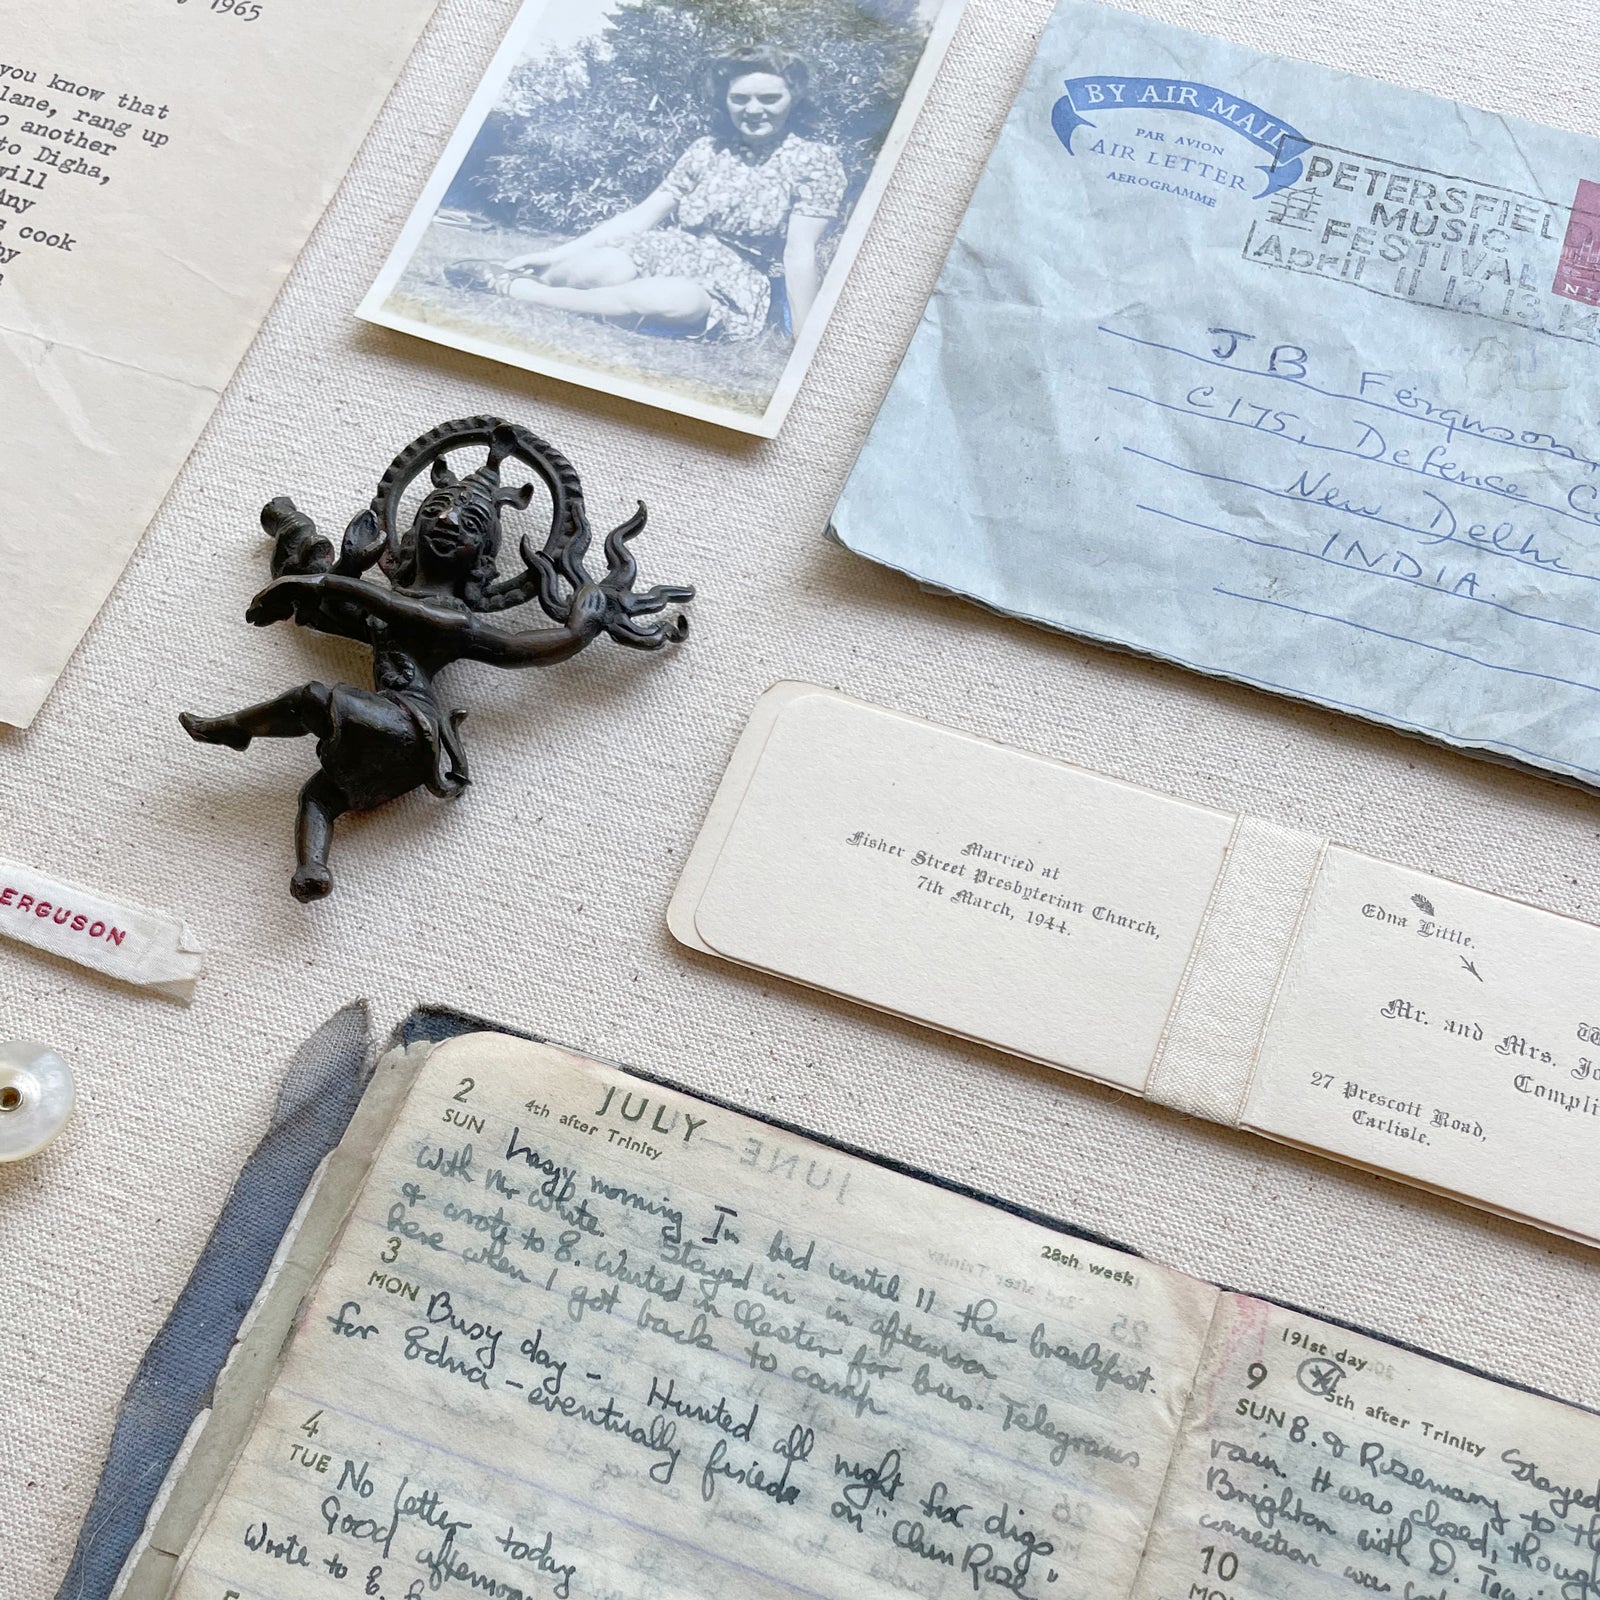 1965
you know that
lane, rang up
o another
to Digha,
will
Any
s cook
by
BY AIR MAIL
PAR AVION
AIR LETTER
AEROGRAMME
PETERSFIEL
MUSIC
FESTIVAL
April 11 12 13 14
J B Ferguson,
C175, Defence Co
New Delhi
INDIA.
ERGUSON
Married at
Fisher Street Presbyterian Church,
7th March, 1944.
Edna Little.
Mr. and Mrs. Jo
Compli
27 Prescott Road,
Carlisle.
JULY
2
SUN
4th after Trinity
28th week
Lazy morning In bed until 11 then breakfast.
with Mr White. Stayed in in afternoon
& wrote to E. Waited in Chester for bus. Telegrams
here when I got back to camp
3
MON
Busy day - Hunted all night for digs
for Edna - eventually fixed on "Clun Rose"
4
TUE
No letter today
Good afternoon
Wrote to E.
5
191st day
9
SUN
5th after Trinity
E. & Rosemary to th
Stayed
rain. It was closed, though
Brighton with D.
connection was
10
MO